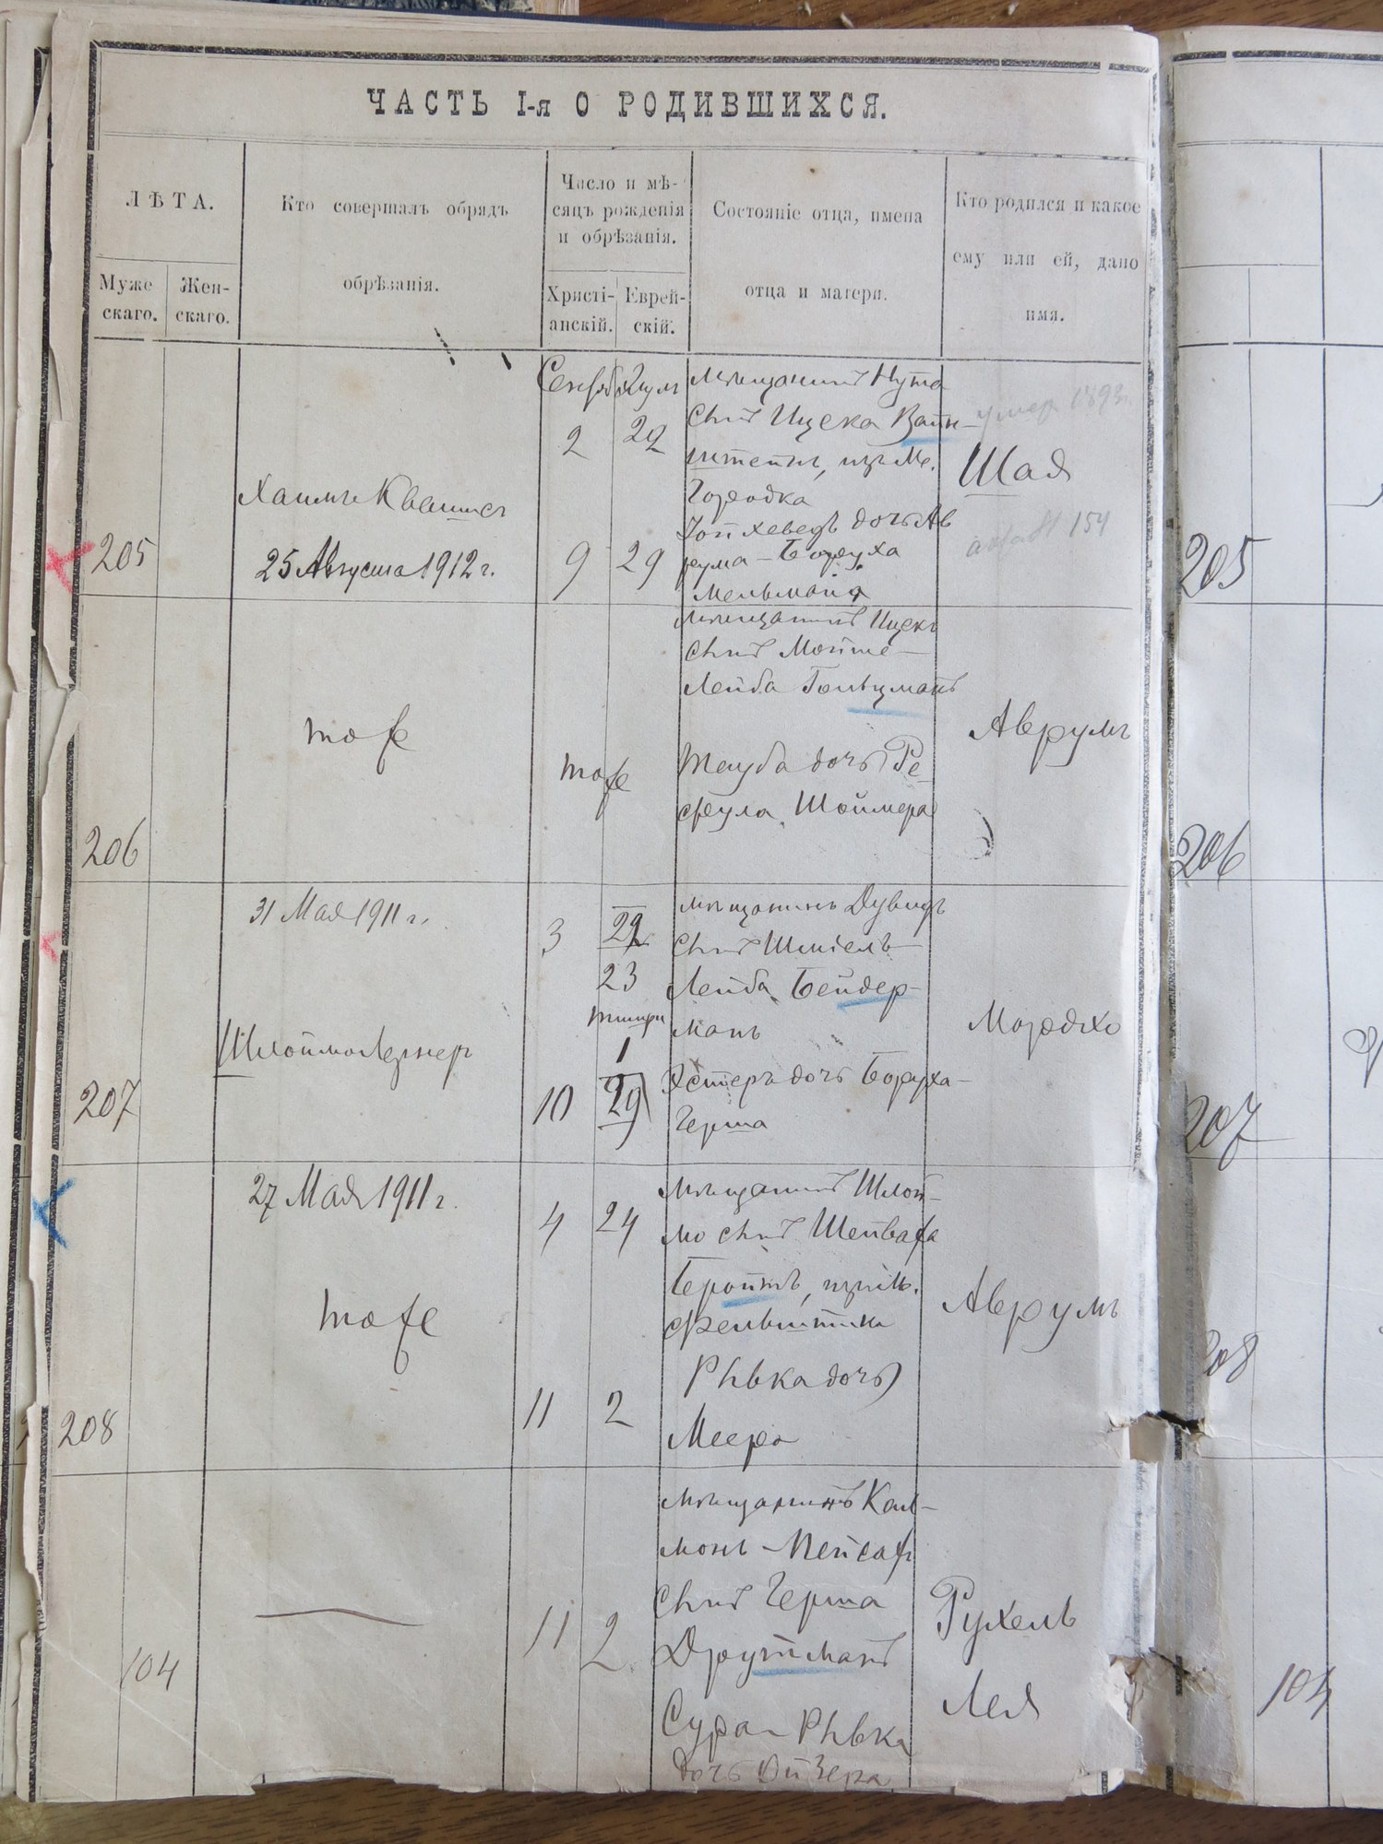 ЧАСТЬ I-я О РОДИВШИХСЯ.
ЛѢТА.
Муже
скаго.
Жен-
скаго.
Кто совершалъ обрядъ
обрѣзанія.
Число и мѣ-
сяцъ рожденія
и обрѣзанія.
Христі-
анскій.
Еврей-
скій.
Состояніе отца, имена
отца и матери.
Кто родился и какое
ему или ей, дано
имя.
205
Хаимъ Квашис
25 Августа 1912 г.
2
22
9
29
мѣщанинъ Нута
сынъ Ицека Вайн-
штейнъ, изъ М.
Городка
Йойхеведъ дочь Ав
рума-Боруха
Мельмана
умер 1893г.
Шая
154
205
206
тоже
тоже
мѣщанинъ Ицекъ
сынъ Мойше-
Лейба Гольцманъ
Тауба дочь Ре-
фула Шоймера
Аврумъ
206
207
31 Мая 1911 г.
Шлоймо Лернер
3
22
23
тишри
1
10
29
мѣщанинъ Дувидъ
сынъ Шміель-
Лейба Бейдер-
манъ
Эстеръ дочь Боруха-
Герша
Мордхо
207
208
27 Мая 1911 г.
тоже
4
24
11
2
мѣщанинъ Шлой-
мо сынъ Шепваха
изъ М.
Фельштина
Рывка дочь
Меера
Аврумъ
208
104
11
2
мѣщанинъ Кал-
монъ-Пейсах
сынъ Герша
Друтманъ
Сура-Рывка
дочь Ойзера
Рухель
Лея
104